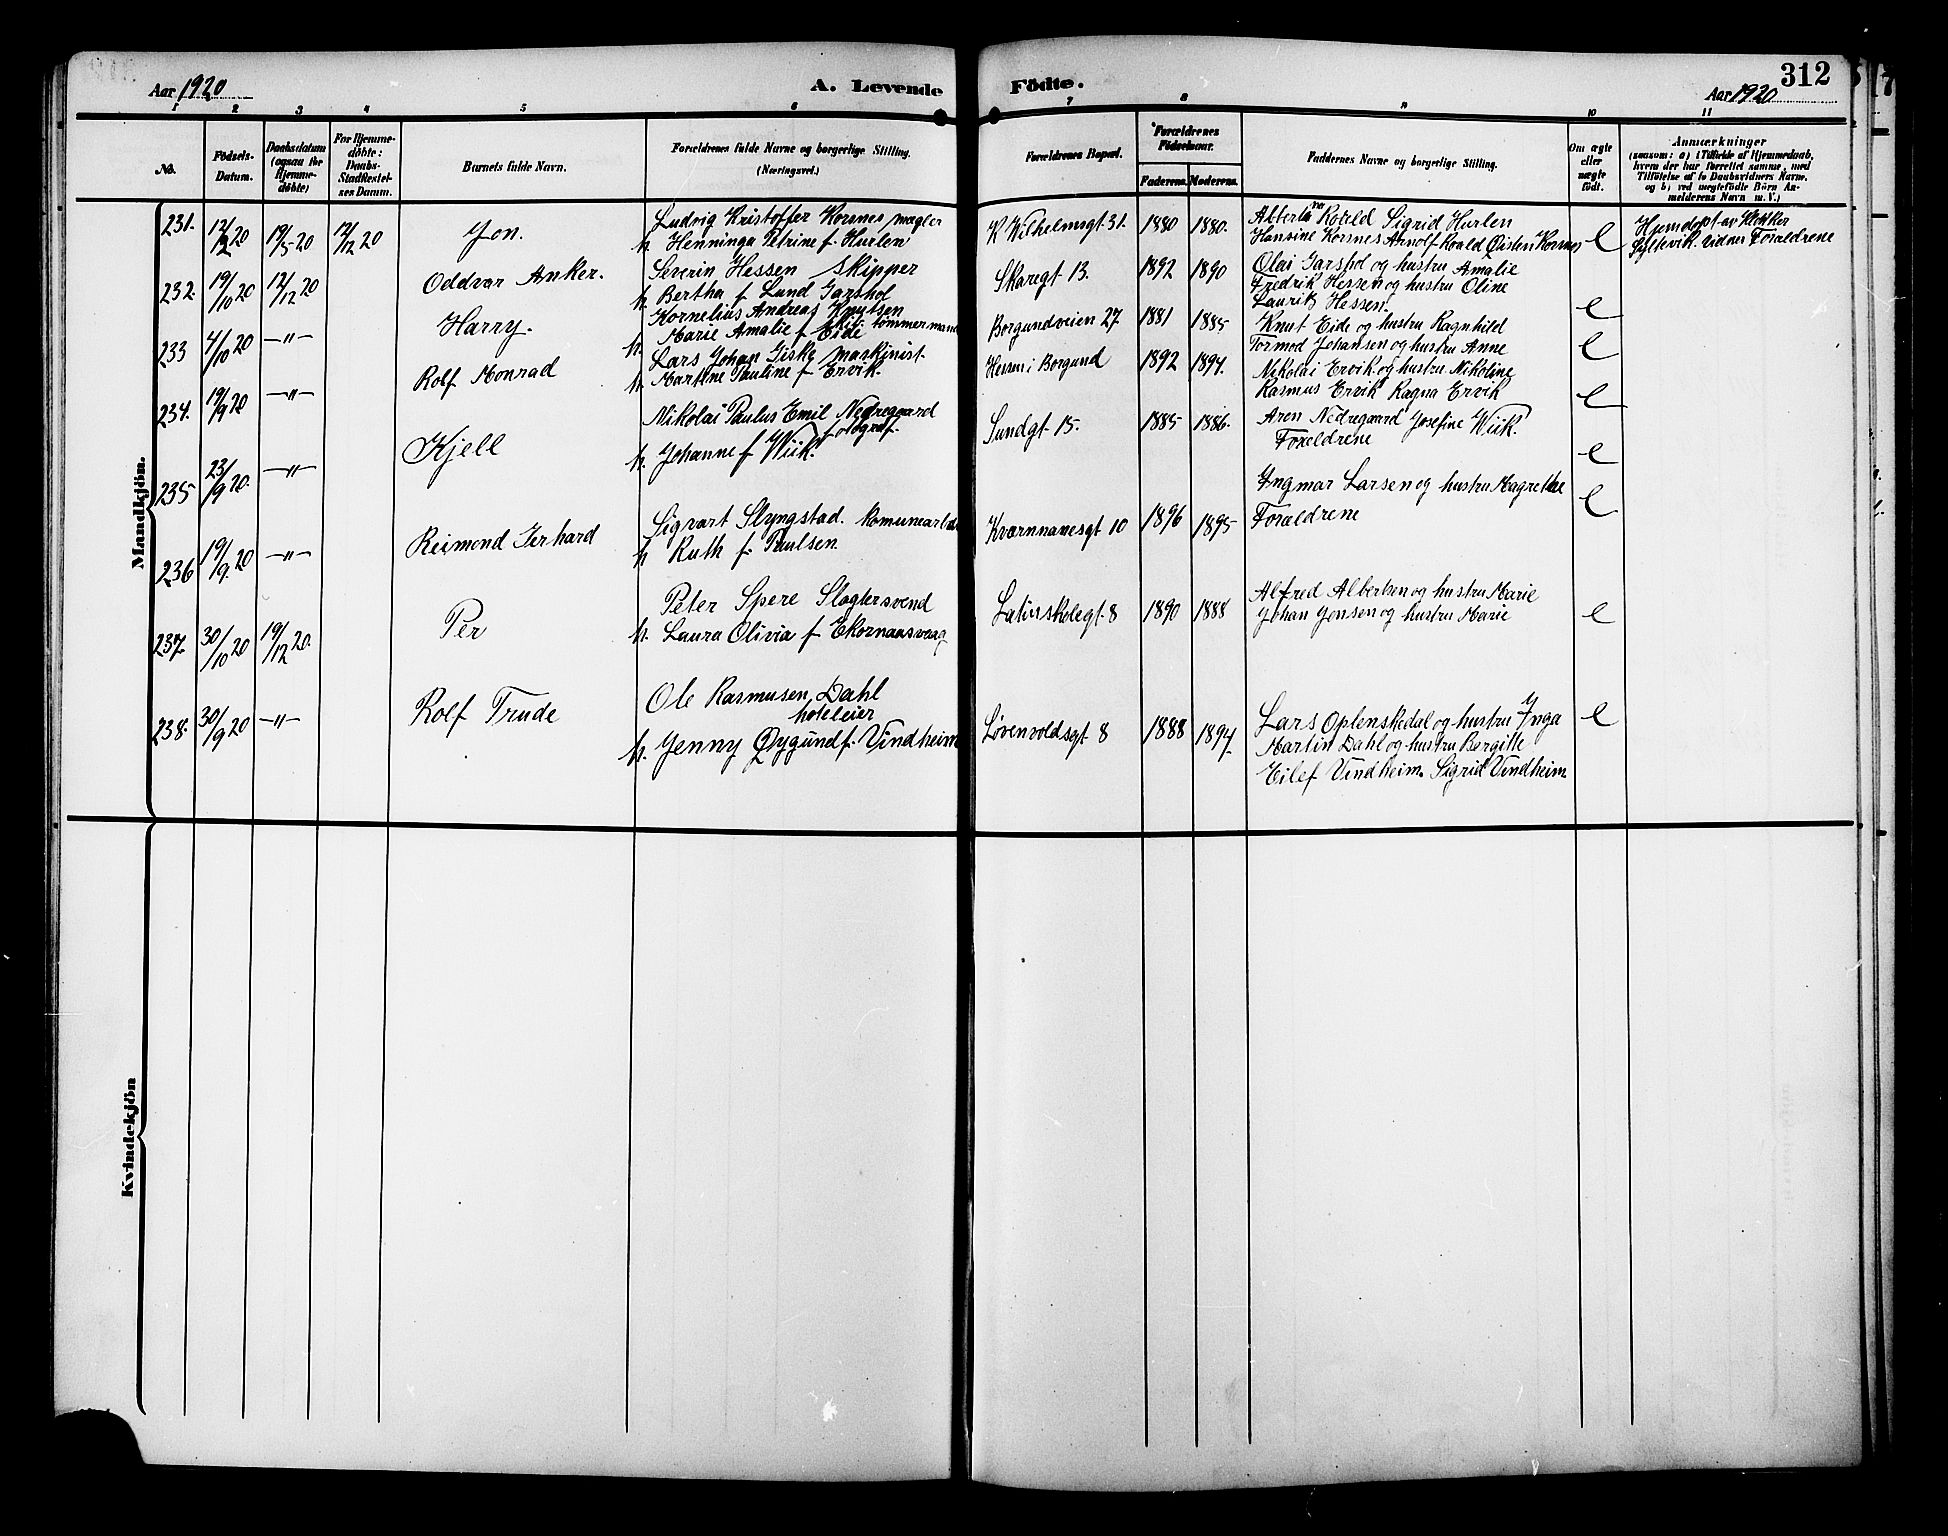 Aar 1920
A. Levende
Födte.
312
Aar 1920
1 2 3 4 5 6 7 8 9 10 11
No.
Födsels-Datum.
Daabsdatum (ogsaa for Hjemmedöbte)
For Hjemmedöbte: Daabs-Stadfæstelses Datum.
Barnets fulde Navn.
Forældrenes fulde Navne og borgerlige Stilling. (Næringsvei.)
Forældrenes Bopæl.
Forældrenes Födselsaar.
Faderens. Moderens.
Faddernes Navne og borgerlige Stilling.
Om ægte eller uægte födt.
Anmærkninger
(saasom: a) i Tilfælde af Hjemmedaab, hvem der har forrettet samme, med Tilföielse af to Daabsvidners Navne, og b) ved uegtefödte Börn Anmelderens Navn m. V.)
Mandkjön.
231. 12/2 20 19/5 20 12/12 20 Jon.
Ludvig Kristoffer Korsnes mægler
h. Henninga Petrine f. Hurlen
K Wilhelmsgt 31. 1880 1880.
Sigrid Hurlen
Hansine Korsnes Arnolf Roald Øisten Korsnes
e
Hjemdøpt av
vidner Forældrene
232. 19/10 20 12/12 20 Oddvar Anker.
Severin Hessen skipper
h. Bertha f. Lund Garshol
Skaregt 13. 1892 1890
Olai Garshol og hustru Amalie
Fredrik Hessen og hustru Oline
Laurits Hessen.
e
233 4/10 20 —"— Harry.
Kornelius Andreas Knutsen
tømmermand
h. Marie Amalie f. Eide
Borgundveien 27. 1881 1885
Knut Eide og hustru Ragnhild
Tormod Johansen og hustru Anne
e
234. 19/9 20 —"— Rolf Monrad
Lars Johan Giske maskinist.
h. Martine Pauline f Ervik.
Hessen i Borgund 1892 1894.
Nikolai Ervik og hustru Nikoline
Rasmus Ervik Ragna Ervik
e
235 23/9 20. —"— Kjell
Nikolai Paulus Emil Nedregaard
fotograf.
h. Johanne f Wiik.
Sundgt 15. 1885 1886.
Aren Nedregaard Josefine Wiik.
Forældrene
e
236 19/9. 20 —"— Reimond Gerhard
Sigvart Slyngstad. komunearb
h Ruth f. Paulsen
Kværnnanesgt 10 1896 1895
Yngmar Larsen og hustru Magrethe
Forældrene
e
237. 30/10 20 19/12 20. Per
Peter Spere Slagtersvend
h. Laura Olivia f Ekornaasvaag
Latinskolegt. 8 1890 1888
Alfred Albertsen og hustru Marie
Johan Jensen og hustru Marie
e
238. 30/9 20 —"— Rolf Trude
Ole Rasmusen Dahl
hoteleier
h. Jenny Øygund f. Vindheim
Løvenvoldsgt 8 1888 1894.
Lars Oplenskedal og hustru Inga
Martin Dahl og hustru Bergitte
Eilef Vindheim. Sigrid Vindheim
e
Kvindekjön